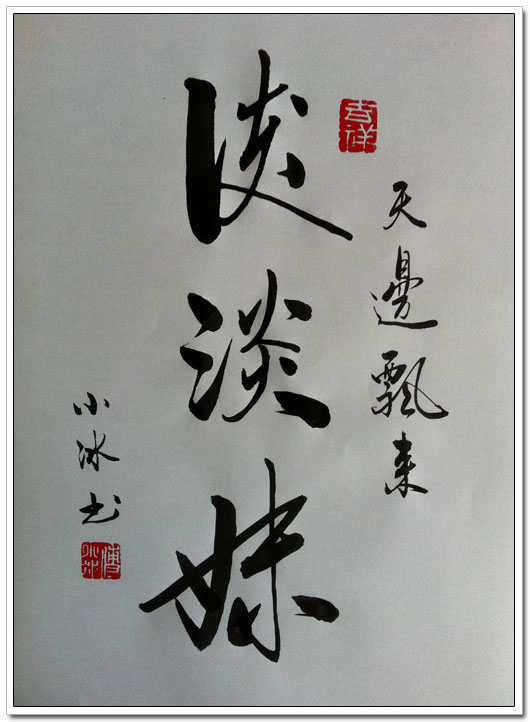 天邊飄来
吉祥
淡淡妹
小冰书
傅小冰